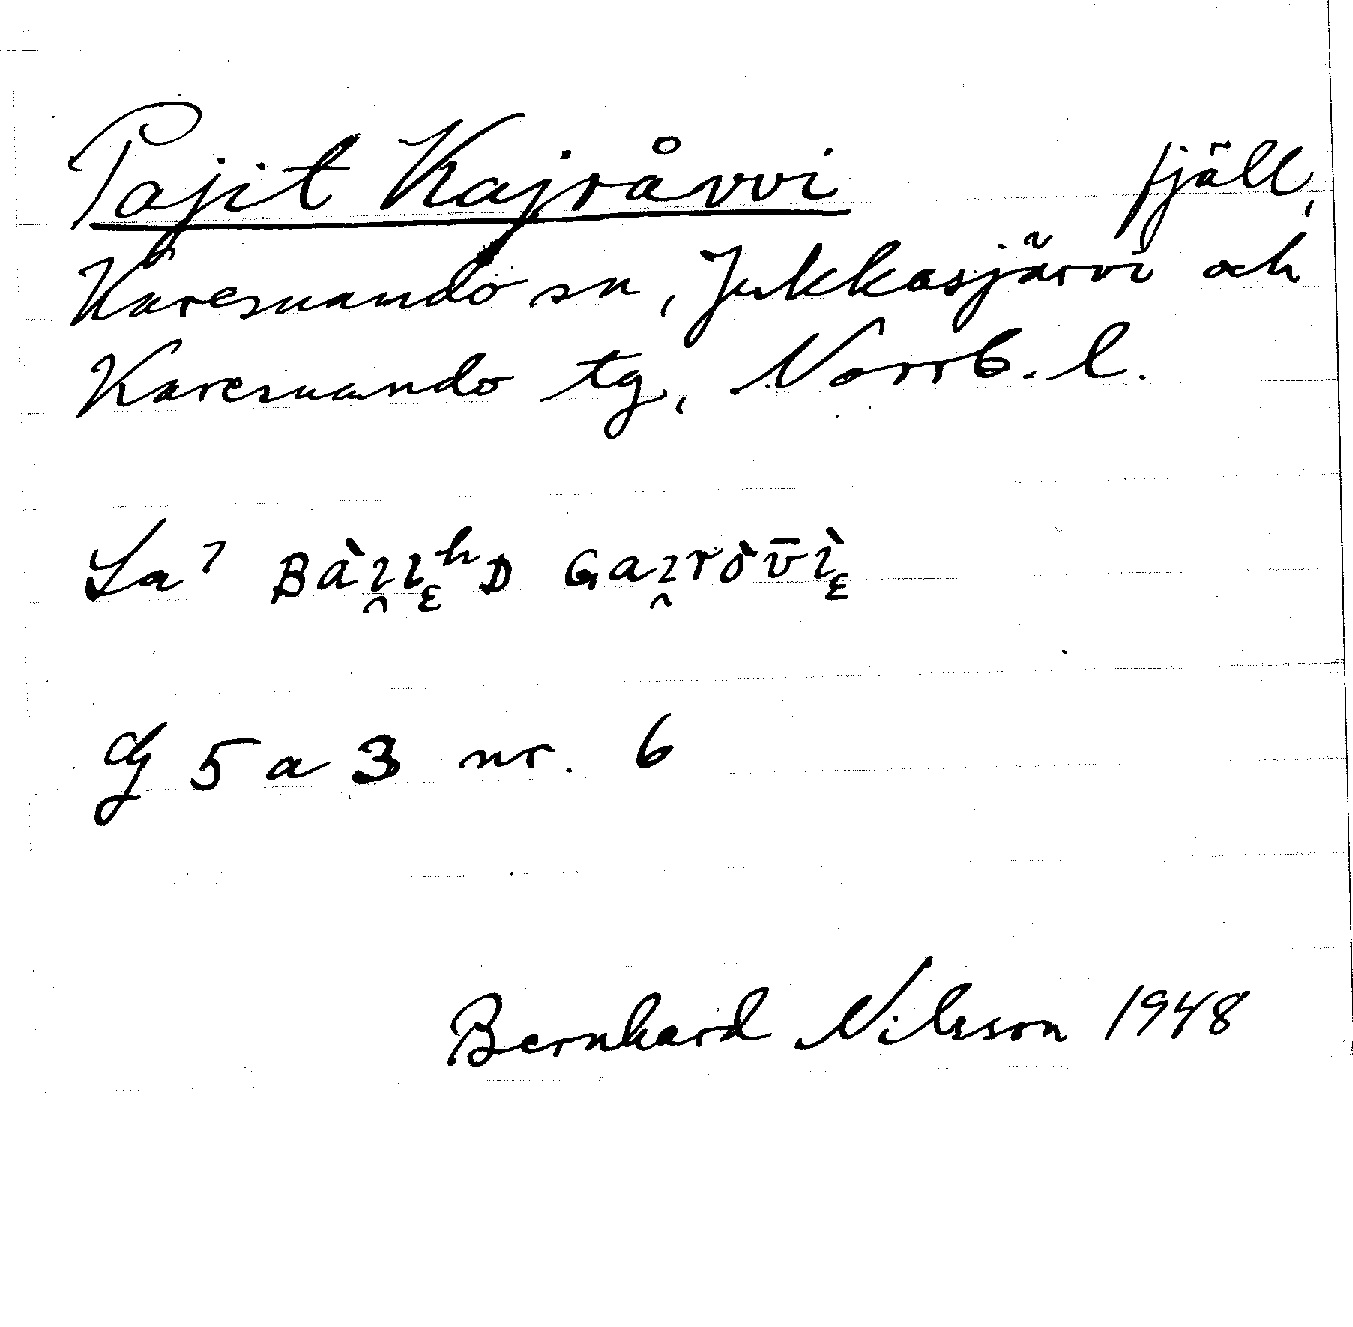 Pajit Kajråvvi fjäll,
Karesuando sn, Jukkasjärvi och
Karesuando tg, Norrb. l.
La 7 Bàı̯ıʰD Gaı̯ròv̄ì
dg 5 a 3 nr. 6
Bernhard Nilsson 1948